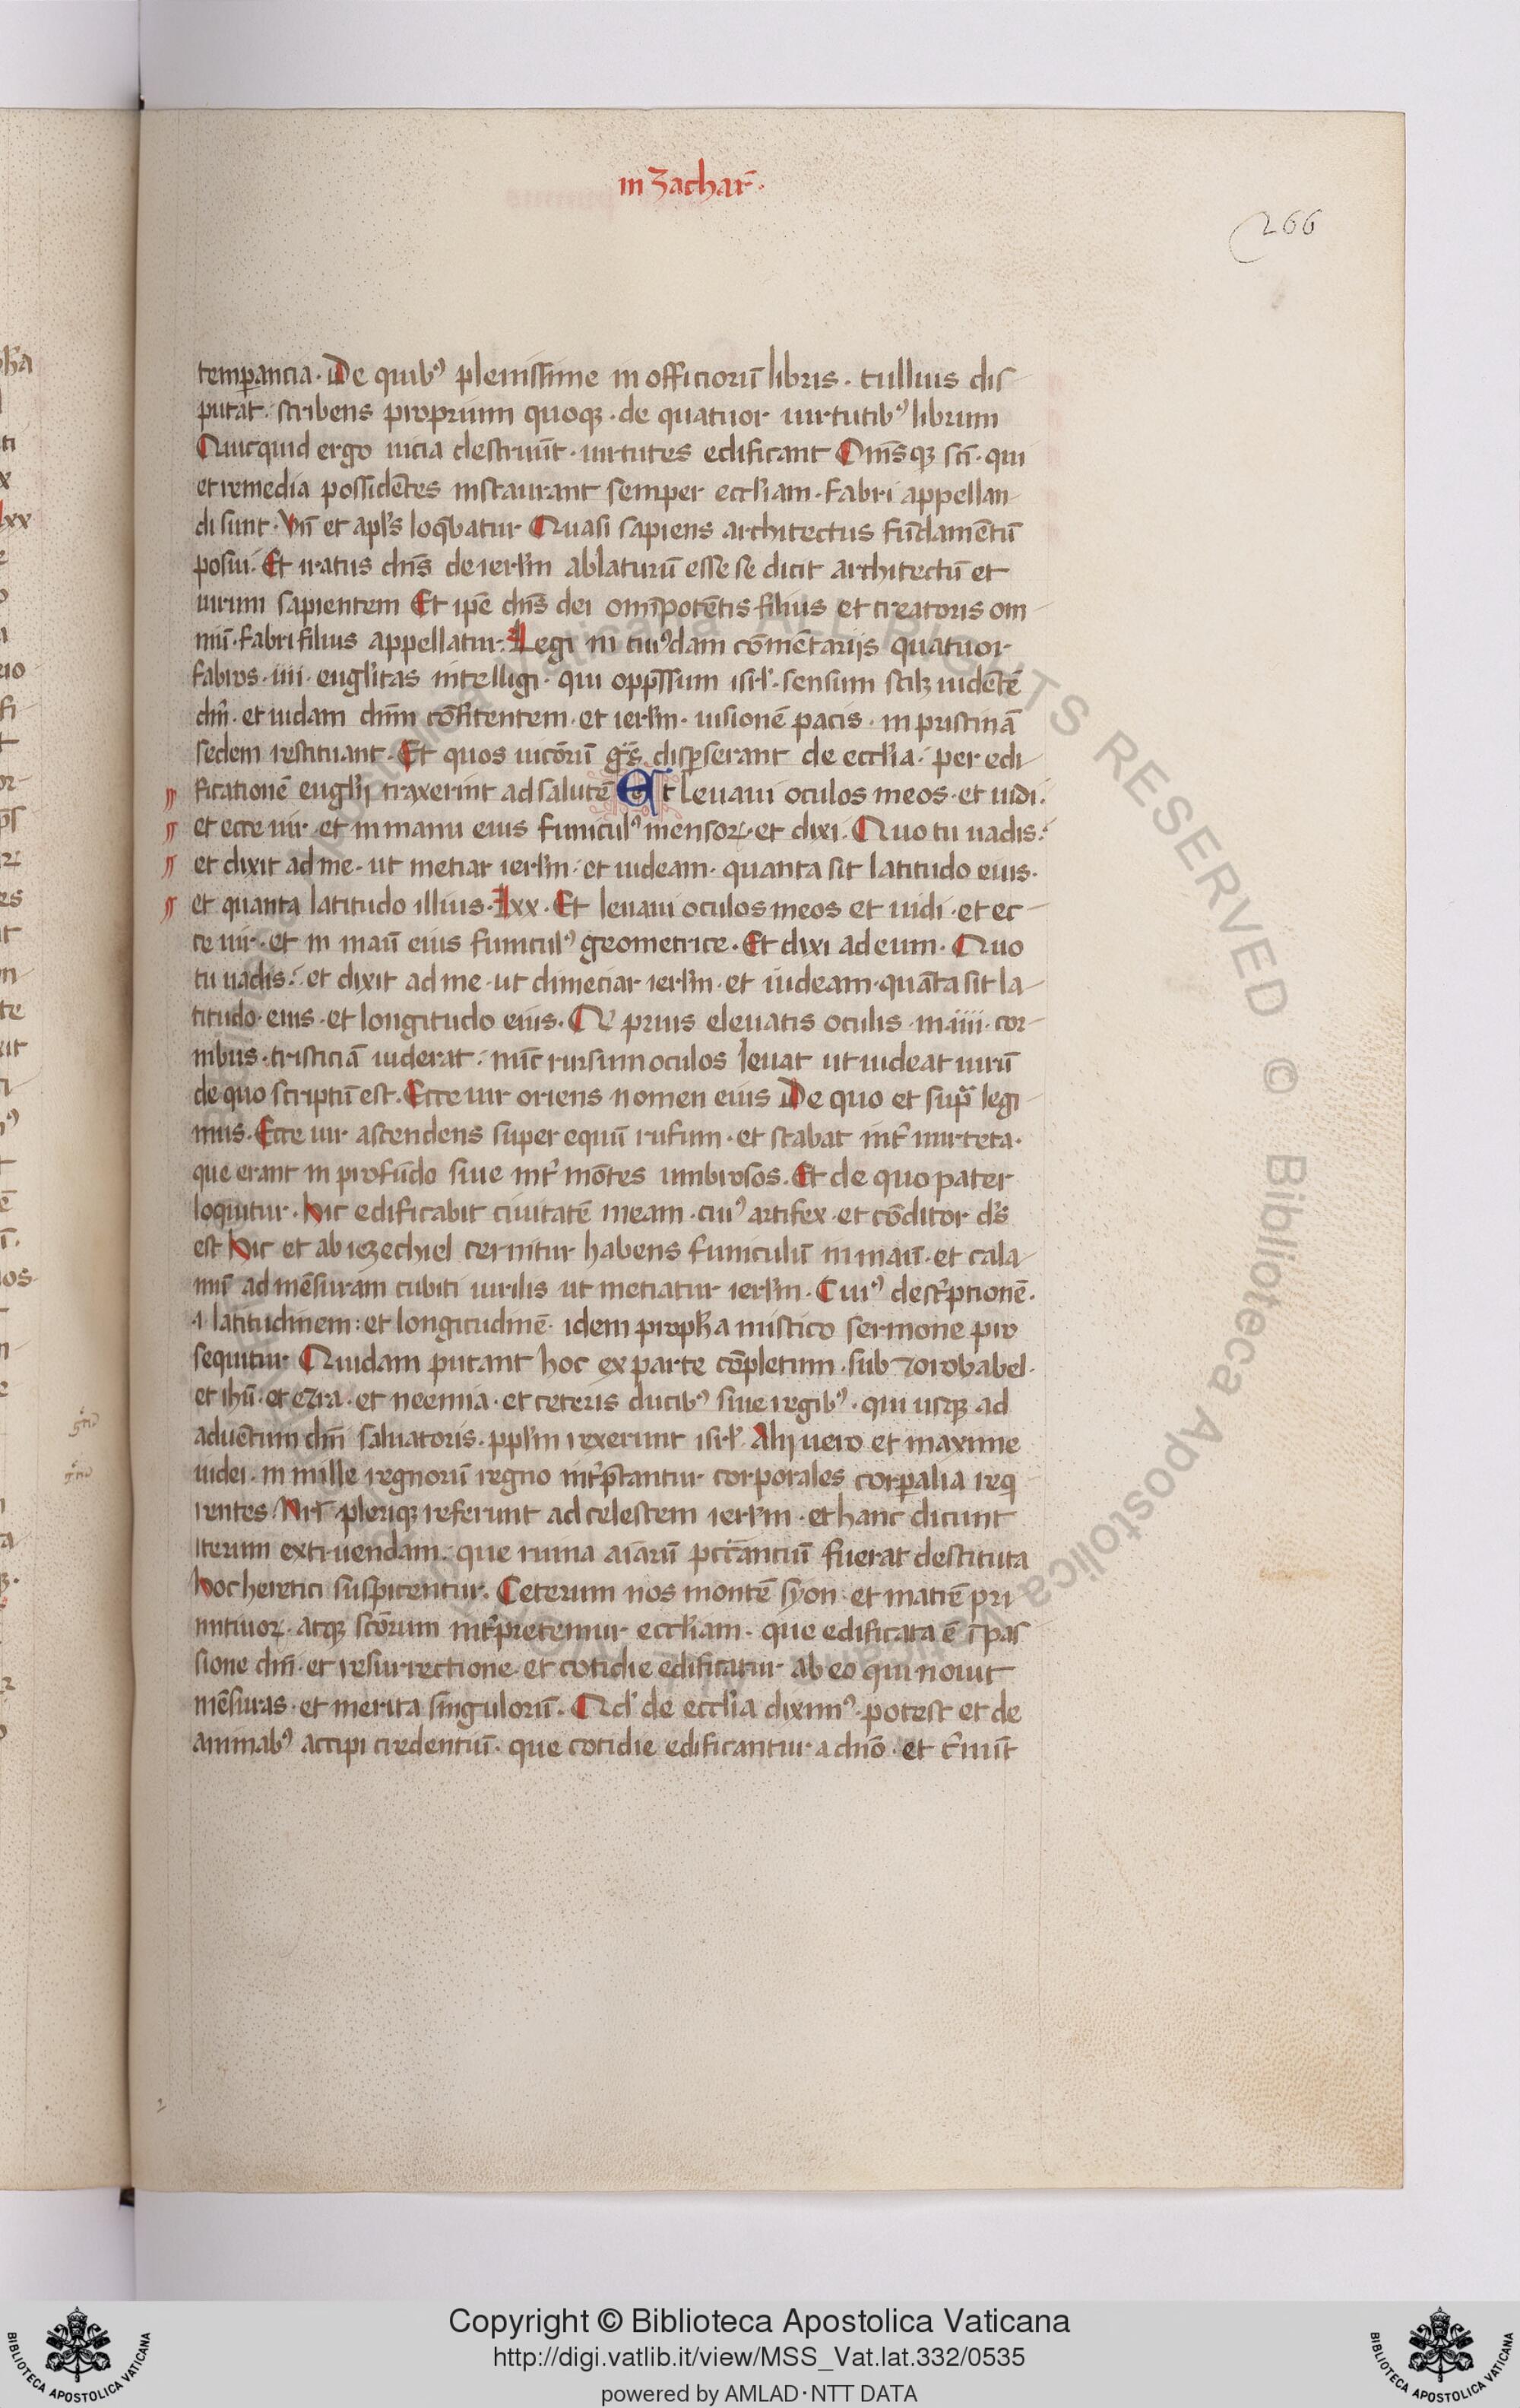 in Zachar̄.
266
temp̱ancia. De quibꝰ plenissime in officiorū libris. tullius dis
putat. scribens proprium quoqꝫ. de quatuor uirtutibꝰ librum
Quicquid ergo uicia destruūt. uirtutes edificant Om̄sqꝫ sc̄i. qui
et remedia possidētes instaurant semper eccl'iam. fabri appellan
di sunt. Vn̄ et apl's loq̄batur Quasi sapiens architectus fūdamētū
posui. Et iratus dn̄s de ierl'm ablaturū esse se dicit architectū et
uirum sapientem Et ip̄e dn̄s dei om̄ipotētis filius et creatoris om
niū. fabri filius appellatur. Legi in cuiꝰdam cōmētarijs quatuor
fabros. iiii. euḡlistas intelligi. qui opp̄ssum isrl'. sensum scilꝫ uidētē
dm̄. et iudam dn̄m cōfitentem. et ierl'm. uisionē pacis. in pristinā
sedem restituant. Et quos uicōrū g̈r̄s disp̱serant de eccl'ia. per edi
ficationē euḡlij traxerint ad salutē Et leuaui oculos meos. et uidi.
et ecce uir. et in manu eius funiculꝰ mensoꝝ. et dixi. Quo tu uadis.
et dixit ad me. ut metiar ierl'm. et uideam. quanta sit latitudo eius.
et quanta latitudo illius. Lxx. Et leuaui oculos meos et uidi. et ec
ce uir. et in maū eius funiculꝰ geometrice. Et dixi ad eum. Quo
tu uadis. et dixit ad me. ut dimeciar ierl'm. et uideam. quāta sit la
titudo. eius. et longitudo eius. Q prius eleuatis oculis. in. iiii. cor
nibus. tristiciā uiderat. nūc rursum oculos leuat ut uideat uirū
de quo scriptū est. Ecce uir oriens nomen eius De quo et supᵃ legi
mus. Ecce uir ascendens super equū rufum. et stabat int' mirteta.
que erant in profūdo siue int' mōtes umbrosos. Et de quo pater
loquitur. Hic edificabit ciuitatē meam. cuiꝰ artifex. et cōditor ds̄
est Hic et ab iezechiel cernitur habens funiculū in maū. et cala
mū ad mēsuram cubiti uirilis ut metiatur ierl'm. Cuiꝰ desc'ptionē.
.i. latitudinem: et longitudinē. idem proph'a mistico sermone pro
sequitur Quidam putant hoc ex parte cōpletum. sub zorobabel.
et ihū. et ezra. et neemia. et ceteris ducibꝰ siue regibꝰ. qui usqꝫ ad
aduētum dn̄i saluatoris. ppl'm rexerunt isrl'. Alij uero et maxime
iudei. in mille regnorū regno int'p̄tantur corporales corp̱alia req̇
rentes. Nr̄i pleriqꝫ referunt ad celestem ierl'm. et hanc dicunt
iterum extruendam. que ruina aīarū pcc̄anciū fuerat destituta
Hoc heretici suspicentur. Ceterum nos montē syon. et matrē pri
mitiuoꝝ. atqꝫ sc̄orum int'pretemur eccl'iam. que edificata ē ī pas
sione dn̄i. et resurrectione. et cotidie edificatur ab eo qui nouit
mēsuras. et merita singulorū. Qd' de eccl'ia diximꝰ. potest et de
animabꝰ accipi credentiū. que cotidie edificantur a dn̄o. et t'miūt
Copyright © Biblioteca Apostolica Vaticana
http://digi.vatlib.it/view/MSS_Vat.lat.332/0535
powered by AMLAD·NTT DATA